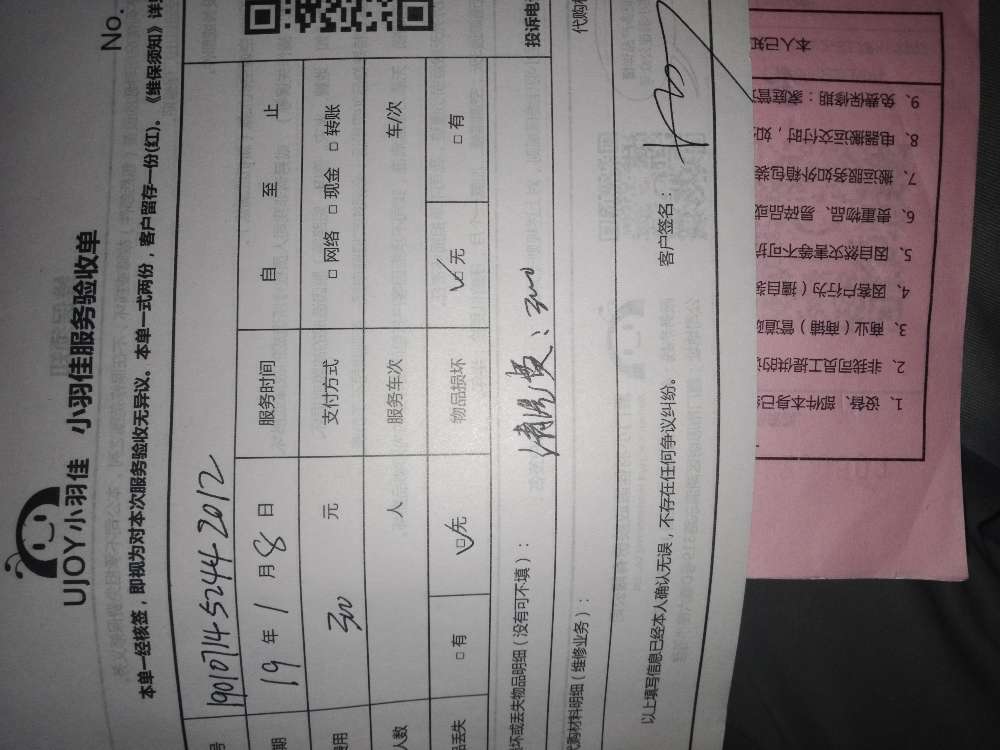 No.
UJOY小羽佳 小羽佳服务验收单
本单一经核签，即视为对本次服务验收无异议。本单一式两份，客户留存一份(红)。《维保须知》详
号 1901071145244 2012
期 19 年 1 月 8 日 服务时间 自 至 止
费用 300 元 支付方式 □ 网络 □ 现金 □ 转账
人数 人 服务车次 车/次
品丢失 □ 有 □ 无 物品损坏 □ 无 □ 有
坏或丢失物品明细（没有可不填）： 清洗费：300 投诉电
代购材料明细（维修业务）： 代购
以上填写信息已经本人确认无误，不存在任何争议纠纷。 客户签名：
1、设备、部件本身已
2、非我司员工提供的
3、商业（商铺）管道
4、因客户行为（擅自
5、因自然灾害等不可抗
6、贵重物品、易碎品或
7、搬运服务如外箱包装
8、电器搬运交付时，如
9、免费保修期：家庭管
本人已知